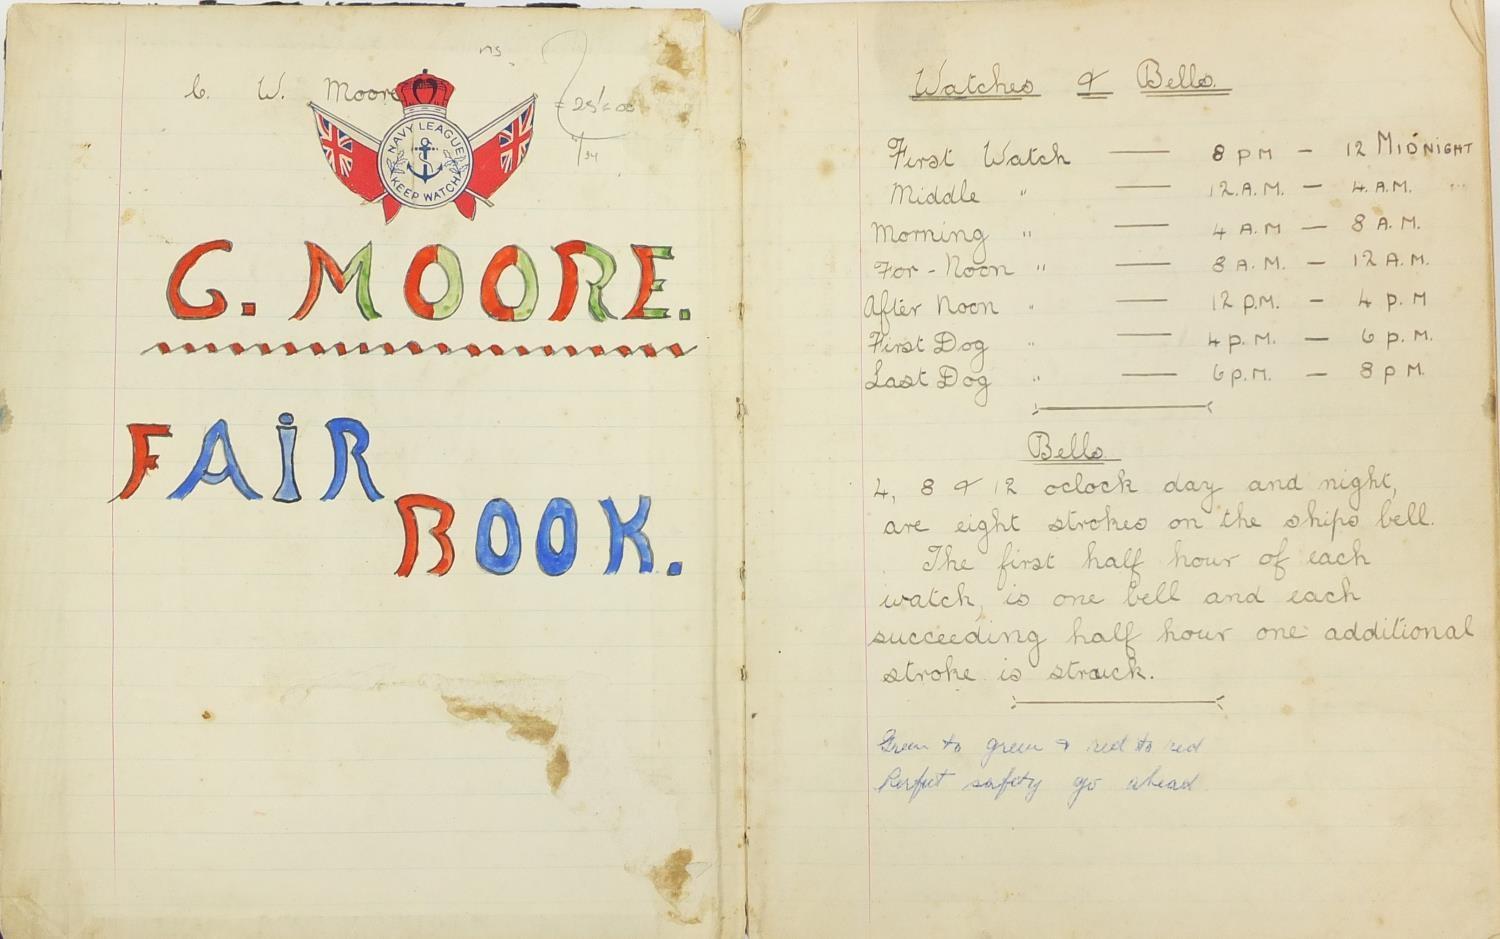 C. W. Moore
NAVY LEAGUE
KEEP WATCH
G. MOORE.
FAIR
BOOK.
Watches & Bells.
First Watch — 8 PM – 12 MIDNIGHT
Middle " — 12 A.M. – 4 A.M.
Morning " — 4 A.M – 8 A.M.
For-Noon " — 8 A.M. – 12 A.M.
After Noon " — 12 P.M. – 4 P.M
First Dog " — 4 P.M. – 6 P.M.
Last Dog " — 6 P.M. – 8 P M.
Bells
4, 8 & 12 oclock day and night,
are eight strokes on the ships bell.
The first half hour of each
watch, is one bell and each
succeeding half hour one additional
stroke is struck.
Green to green & red to red
Perfect safety go ahead